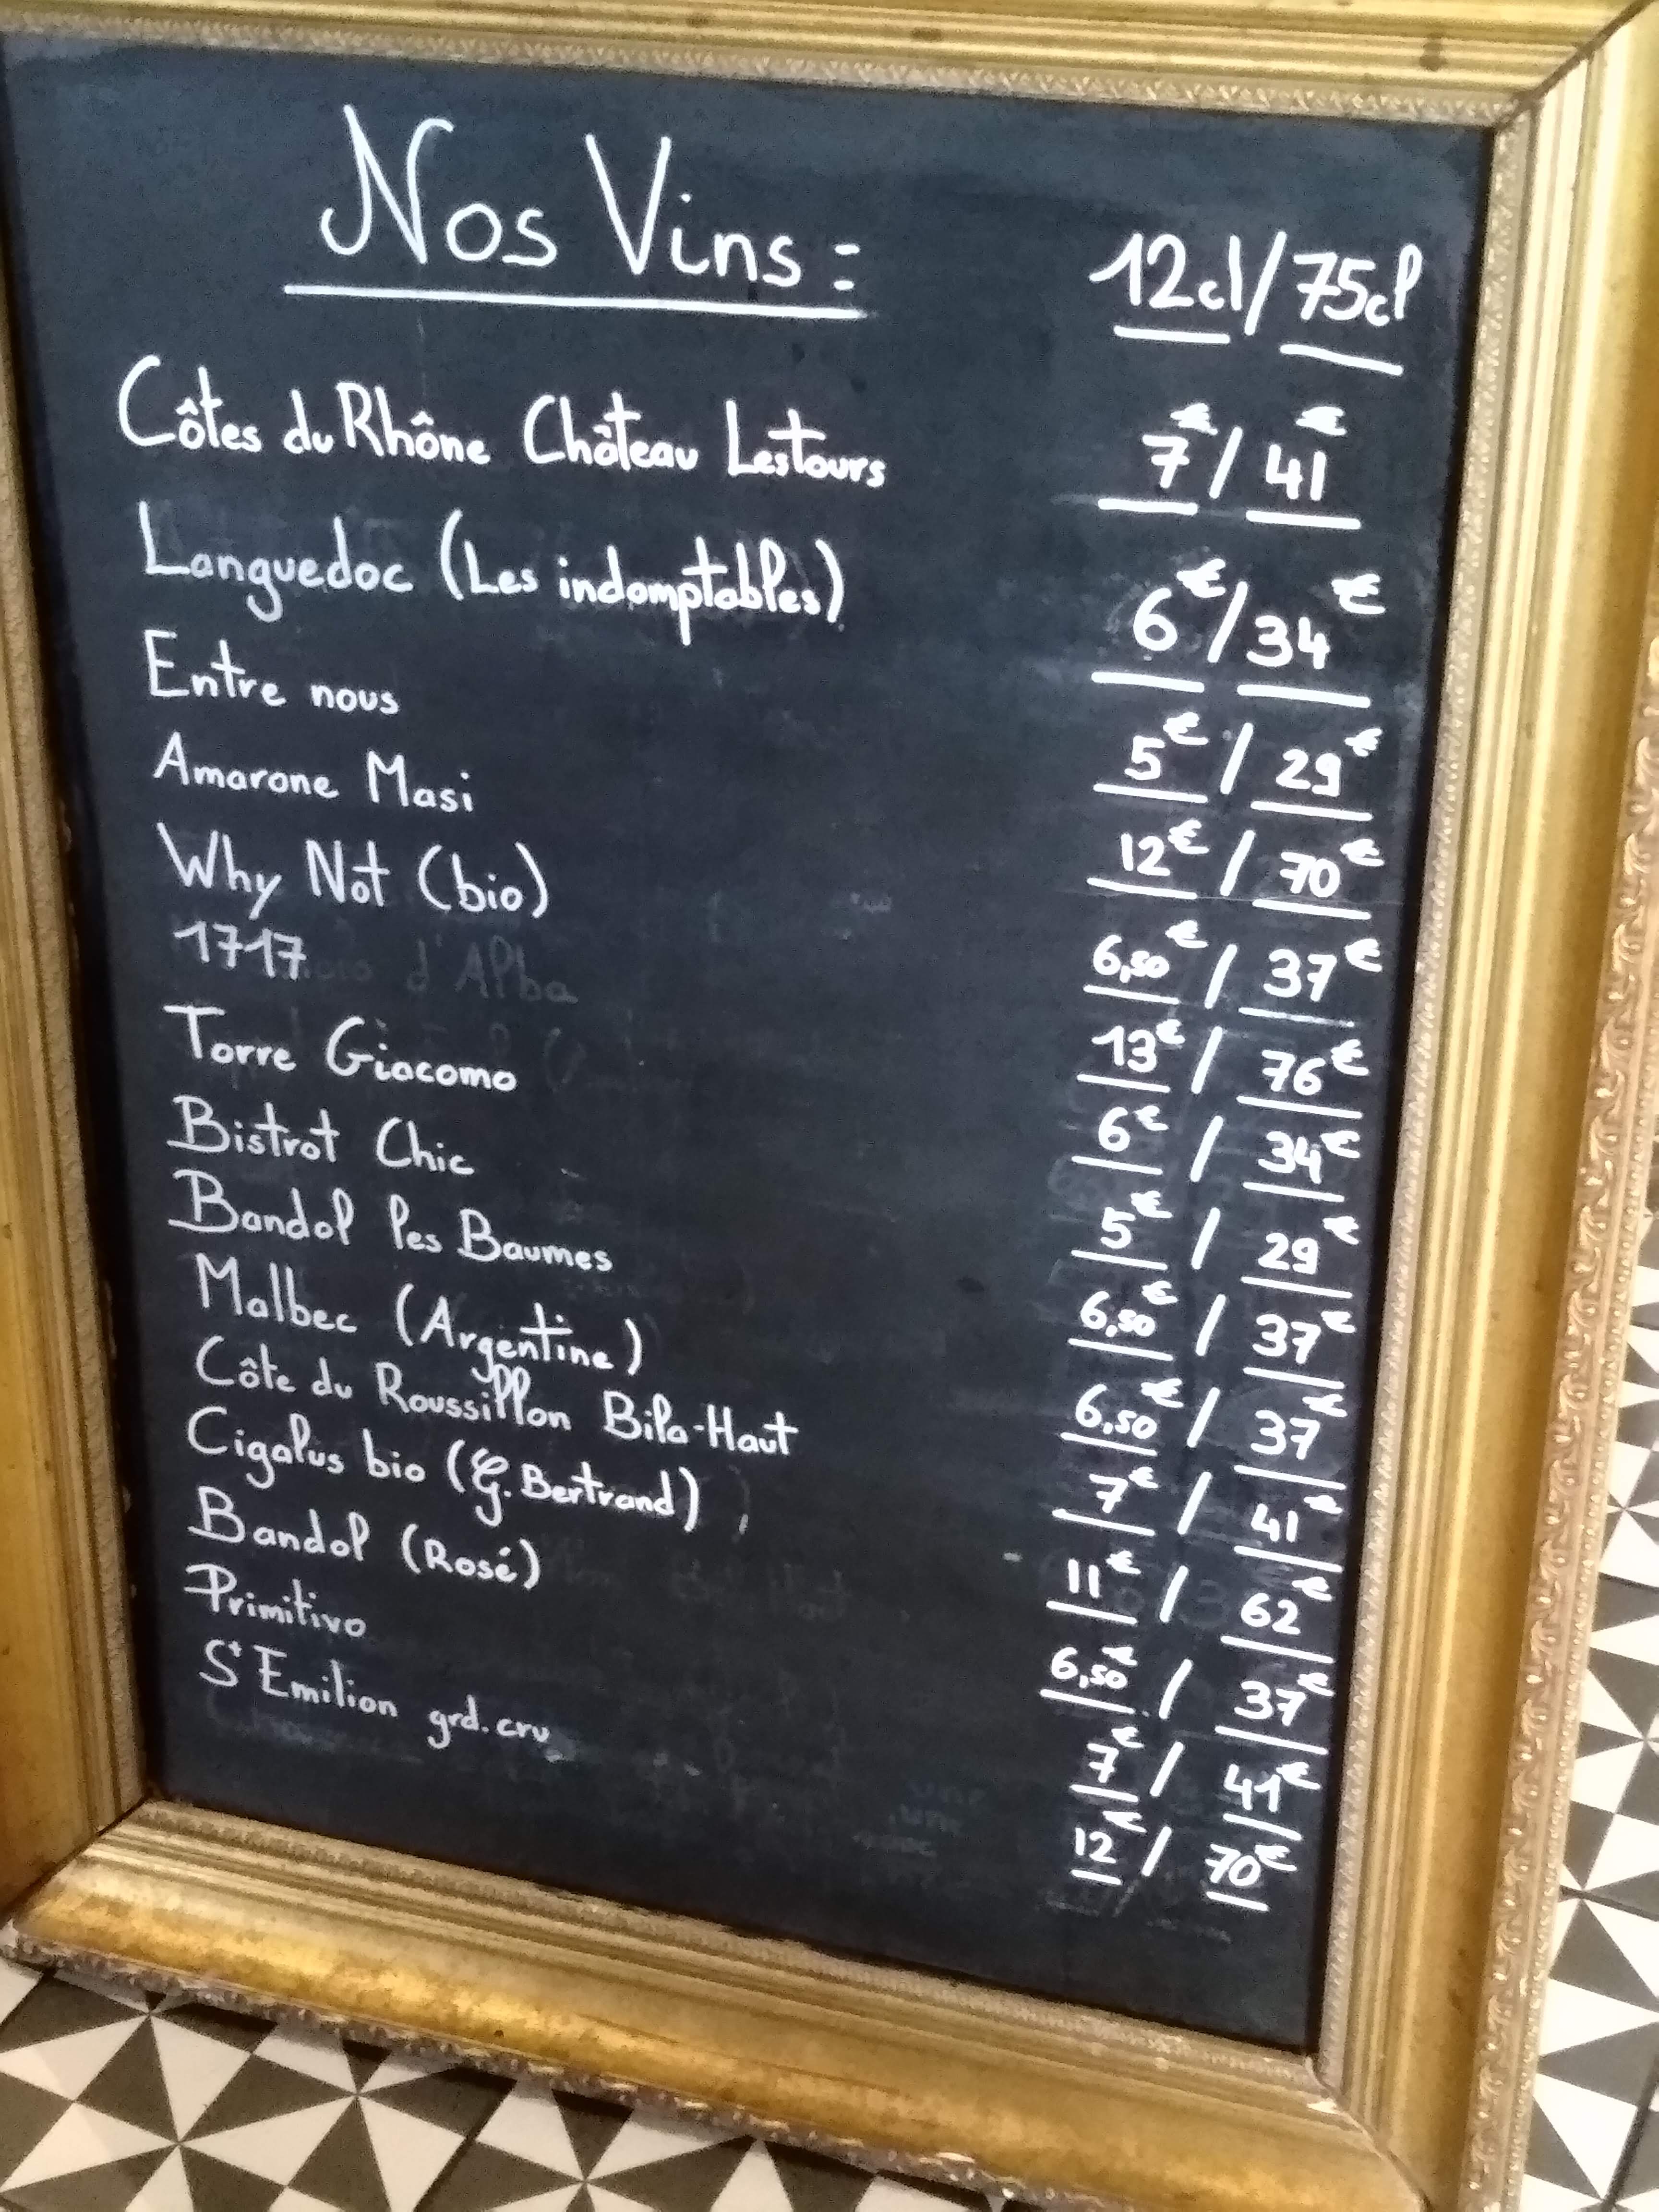 Nos Vins : 12cl / 75cl
Côtes du Rhône Château Lestours 7€ / 41€
Languedoc (Les indomptables) 6€ / 34€
Entre nous 5€ / 29€
Amarone Masi 12€ / 70€
Why Not (bio) 6,50€ / 37€
1717 13€ / 76€
Torre Giacomo 6€ / 34€
Bistrot Chic 5€ / 29€
Bandol les Baumes 6,50€ / 37€
Malbec (Argentine) 6,50€ / 37€
Côte du Roussillon Bila-Haut 7€ / 41€
Cigalus bio (G. Bertrand) 11€ / 62€
Bandol (Rosé) 6,50€ / 37€
Primitivo 7€ / 41€
St Emilion grd. cru 12€ / 70€